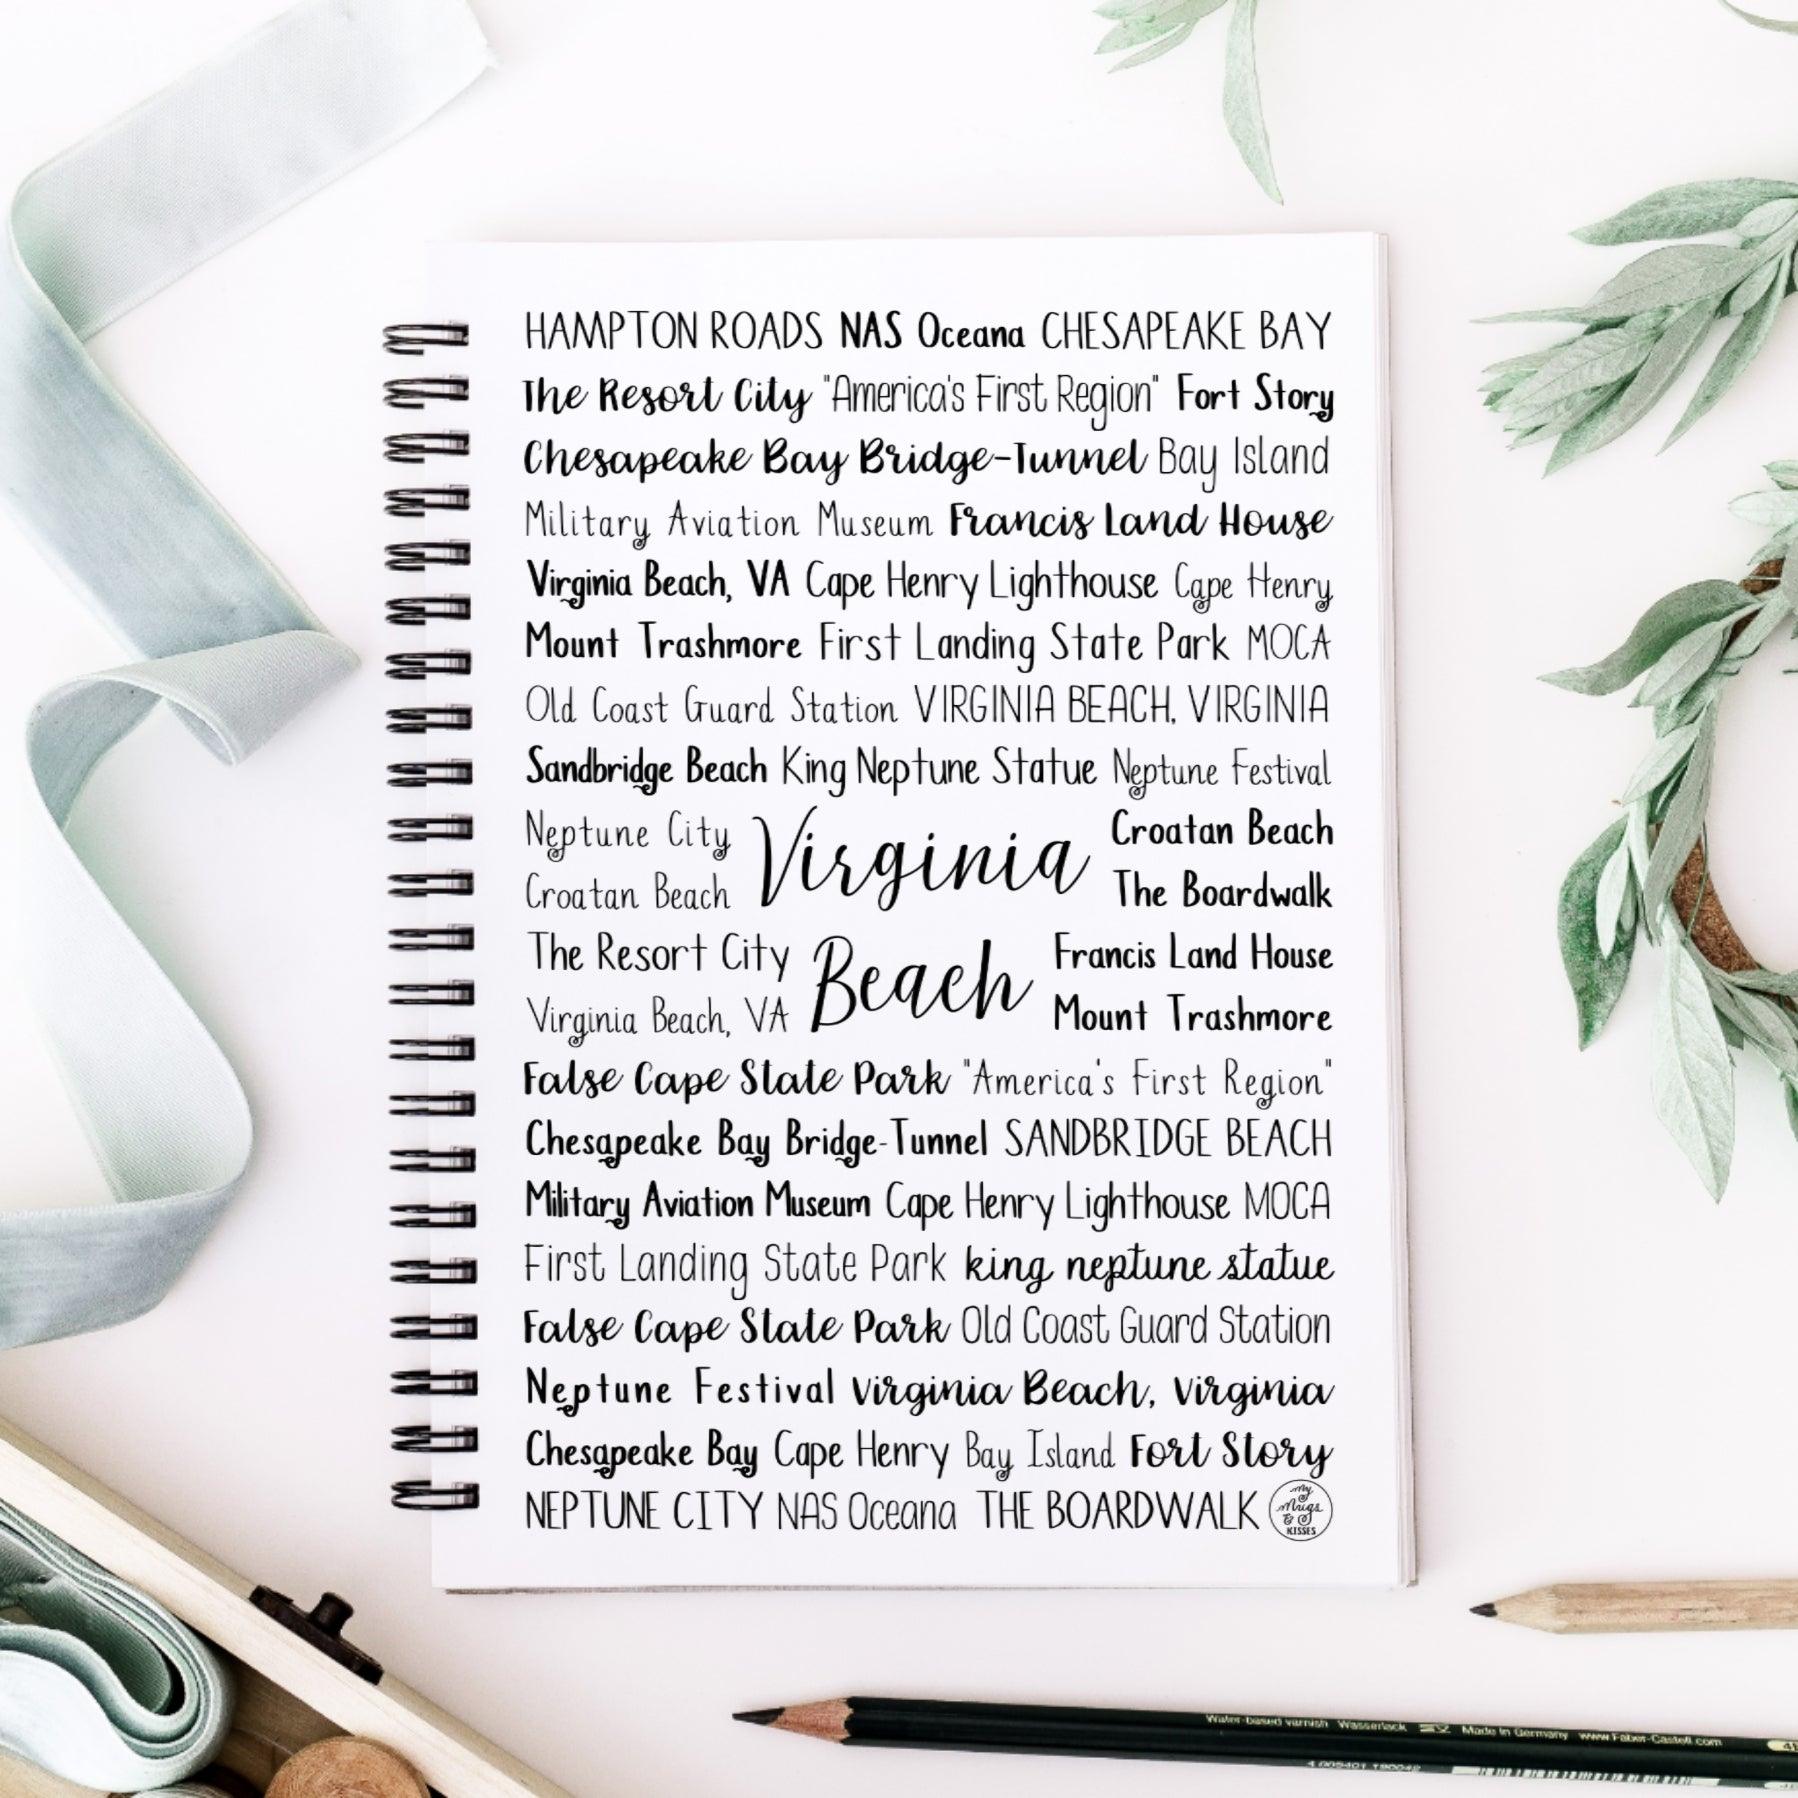 HAMPTON ROADS NAS Oceana CHESAPEAKE BAY
The Resort City "America's First Region" Fort Story
Chesapeake Bay Bridge-Tunnel Bay Island
Military Aviation Museum Francis Land House
Virginia Beach, VA Cape Henry Lighthouse Cape Henry
Mount Trashmore First Landing State Park MOCA
Old Coast Guard Station VIRGINIA BEACH, VIRGINIA
Sandbridge Beach King Neptune Statue Neptune Festival
Neptune City
Croatan Beach
Virginia
Croatan Beach
The Boardwalk
The Resort City
Virginia Beach, VA
Beach
Francis Land House
Mount Trashmore
False Cape State Park "America's First Region"
Chesapeake Bay Bridge-Tunnel SANDBRIDGE BEACH
Military Aviation Museum Cape Henry Lighthouse MOCA
First Landing State Park king neptune statue
False Cape State Park Old Coast Guard Station
Neptune Festival Virginia Beach, Virginia
Chesapeake Bay Cape Henry Bay Island Fort Story
NEPTUNE CITY NAS Oceana THE BOARDWALK
My
Mugs
&
KISSES
Water-based varnish Wasserlack Made in Germany www.Faber-Castell.com
4 005401 190042